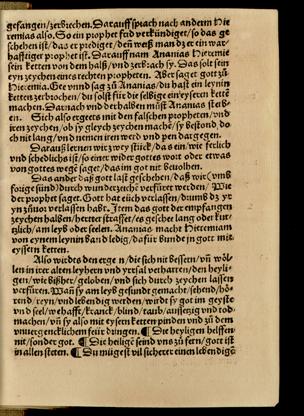 gefangen/zerbrechen. Darauff sprach nach andeim Hie
remias also. So ein prophet frid verkündiget/so das ge
schehen ist/das er prediget/den weß man dz er ein war
hafftiger prophet ist. Darauff nam Ananias Hieremie
sein ketten von dem halß/vnd zerbrach sy. Das solt sein
eyn zeychen eines rechten propheten. Aber saget gott zů
Hieremia. Gee vnnd sag zů Ananias/du hast ein leynin
ketten zerbrochen/du solst für die selbige ein eyseren kettē
machen. Darnach vnd derhalben můst Ananias sterbē
en. Sich also ergeets mit den falschen propheten/vnd
iren zeychen/ob sy gleych zeychen machē/sy bestond do
ch nit lang/vnd nemen iren verd vnd pen dargegen.
Darauß lernen wir zwey stück/das ein/wie ferlich
vnd schedlichs ist/so einer wider gottes wort oder etwas
von gottes wegē saget/das im got nit bevolhen.
Das ander daß gott last geschehen/daß wir (vmb
fürwitz sünd) durch wunderzeichē verfürt werden/Wie
der prophet saget. Gott hat eüch verlassen/dumb dz
yn zůuor verlassen habt. Item das gott der empfangen
zeychen halben/hertter straffet/es gescheē lang oder kur
tzlich/am leyb oder seelen. Ananias macht Hieremiam
von eynem leynin band ledig/dafür bundt jn gott mit
eysern ketten.
Also würdts den ergern/die sich nit bessern/vñ wöl
len in irer alten leyhern vnd yrrsal verharren/den heyli-
gen/wie bißher/geloben/vnd sich durch zeychen lassen
verfüren. Wañ sy am leyb gesundt gemacht/sehend/hö-
rend/reyn/vnd lebendig werden/wirdt sy got im geyste
vnd seel/wehafft/kranck/blind/taub/aussetzig vnd tod-
machen/vñ sy also mit eysern ketten pinden vnd zů dem
vnuergencklichem feür dringen. ¶ Die heyligen helffen
nit/sonder got. ¶ Die heilige seind vns zů fern/gott ist
in allen stetten. ¶ Du mügest vil sicherer einen lebendigē